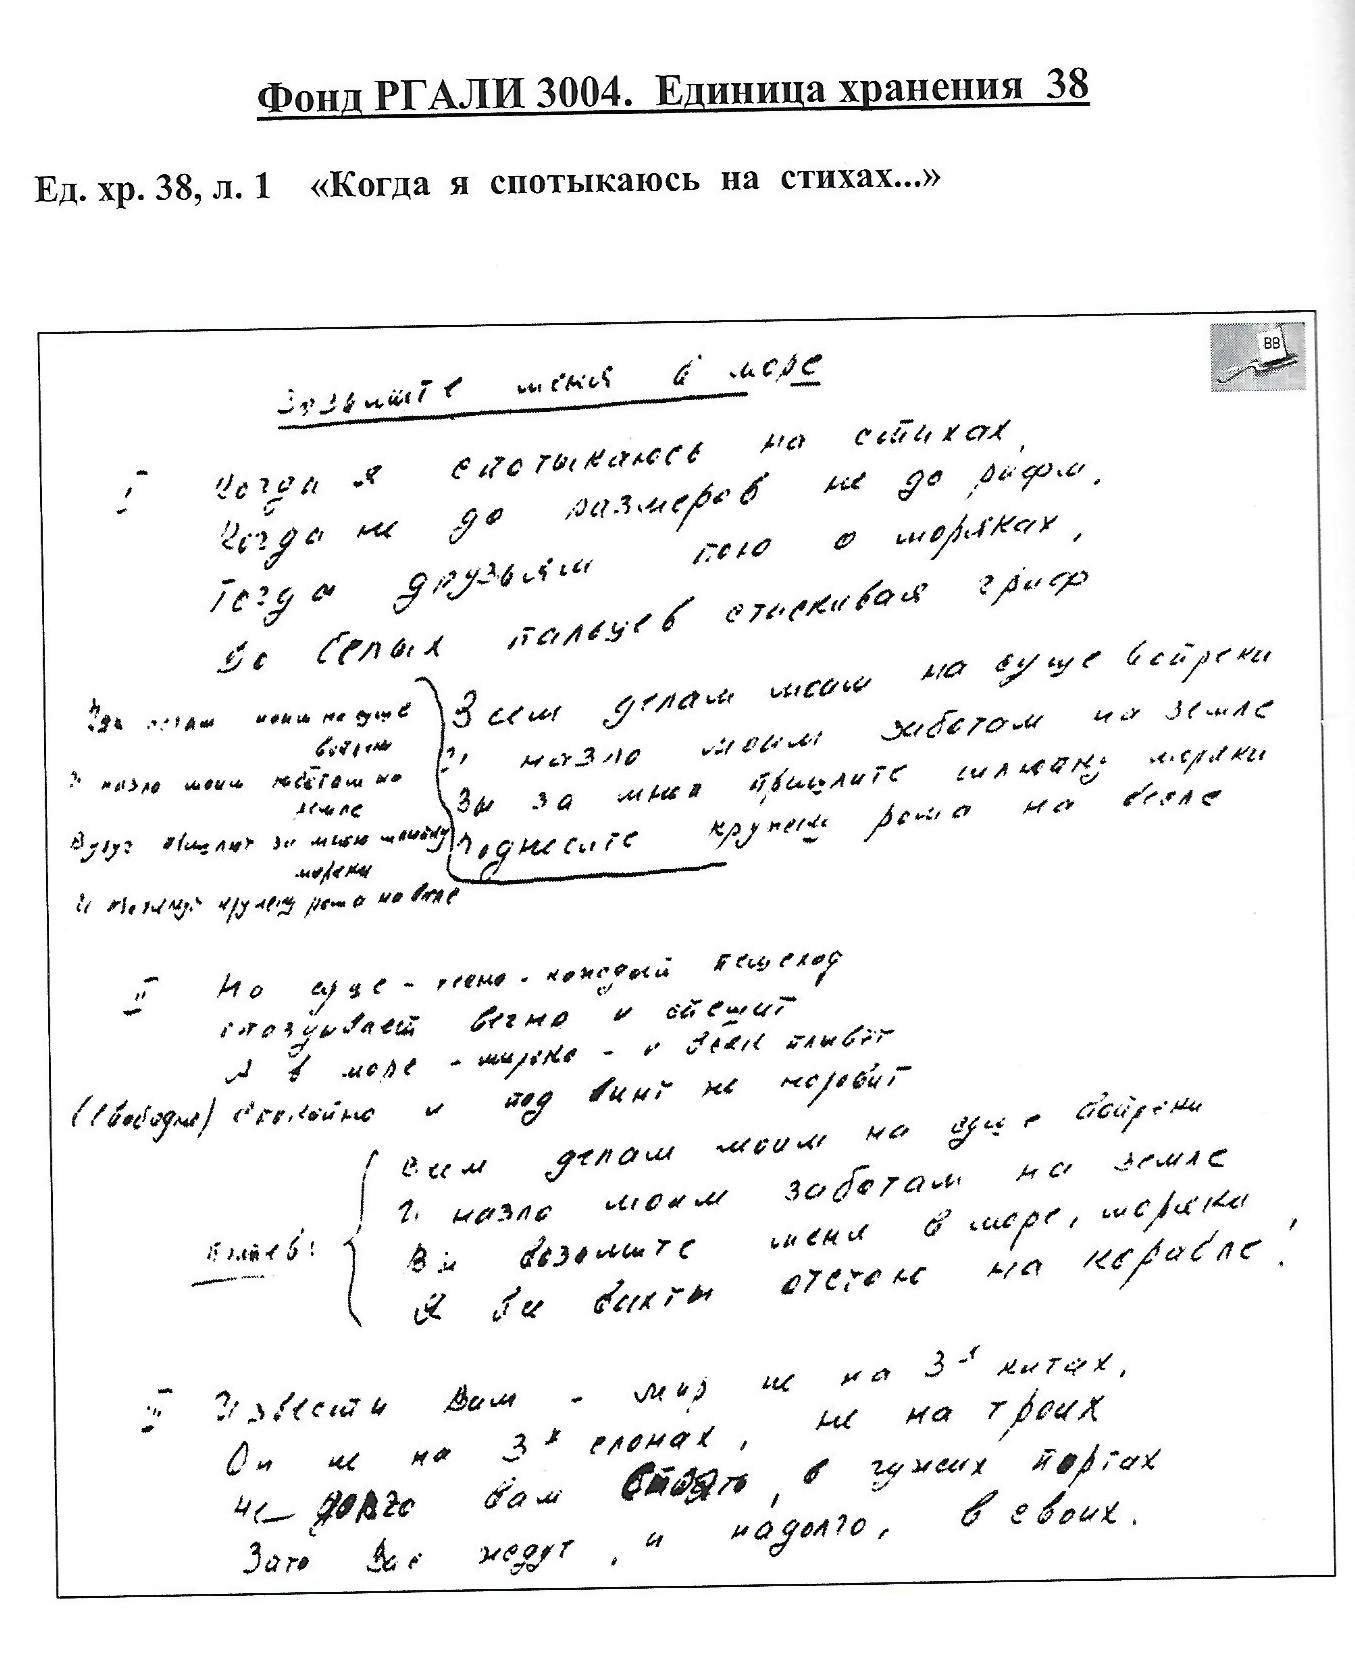 Фонд РГАЛИ 3004. Единица хранения 38
Ед. хр. 38, л. 1 «Когда я спотыкаюсь на стихах...»
ВВ
Возьмите меня в море
I Когда я спотыкаюсь на стихах,
Когда не до размеров не до рифм,
Тогда друзьям пою о моряках,
До белых пальцев стискивая гриф
Всем делам моим на суше вопреки
И назло моим заботам на земле
Вы за мной пришлите шлюпку моряки
Поднесите кружечку рома на весле
делам моим на суше
вопреки
И назло моим заботам на
земле
Вдруг пришлют за мною шлюпку
моряки
И кружечку рома на весле
II На суше - тесно - каждый пешеход
опаздывает вечно и спешит
А в море - широко - и всяк плывёт
(свободно) спокойно и под винт не норовит
Всем делам моим на суше вопреки
И назло моим заботам на земле
припев: Вы возьмите меня в море, моряки,
Я все вахты отстою на корабле.
III Известно Вам - мир не на 3-х китах,
Он не на 3х слонах, не на троих
Не долго вам стоять, в чужих портах
Зато Вас ждут, и надолго, в своих.